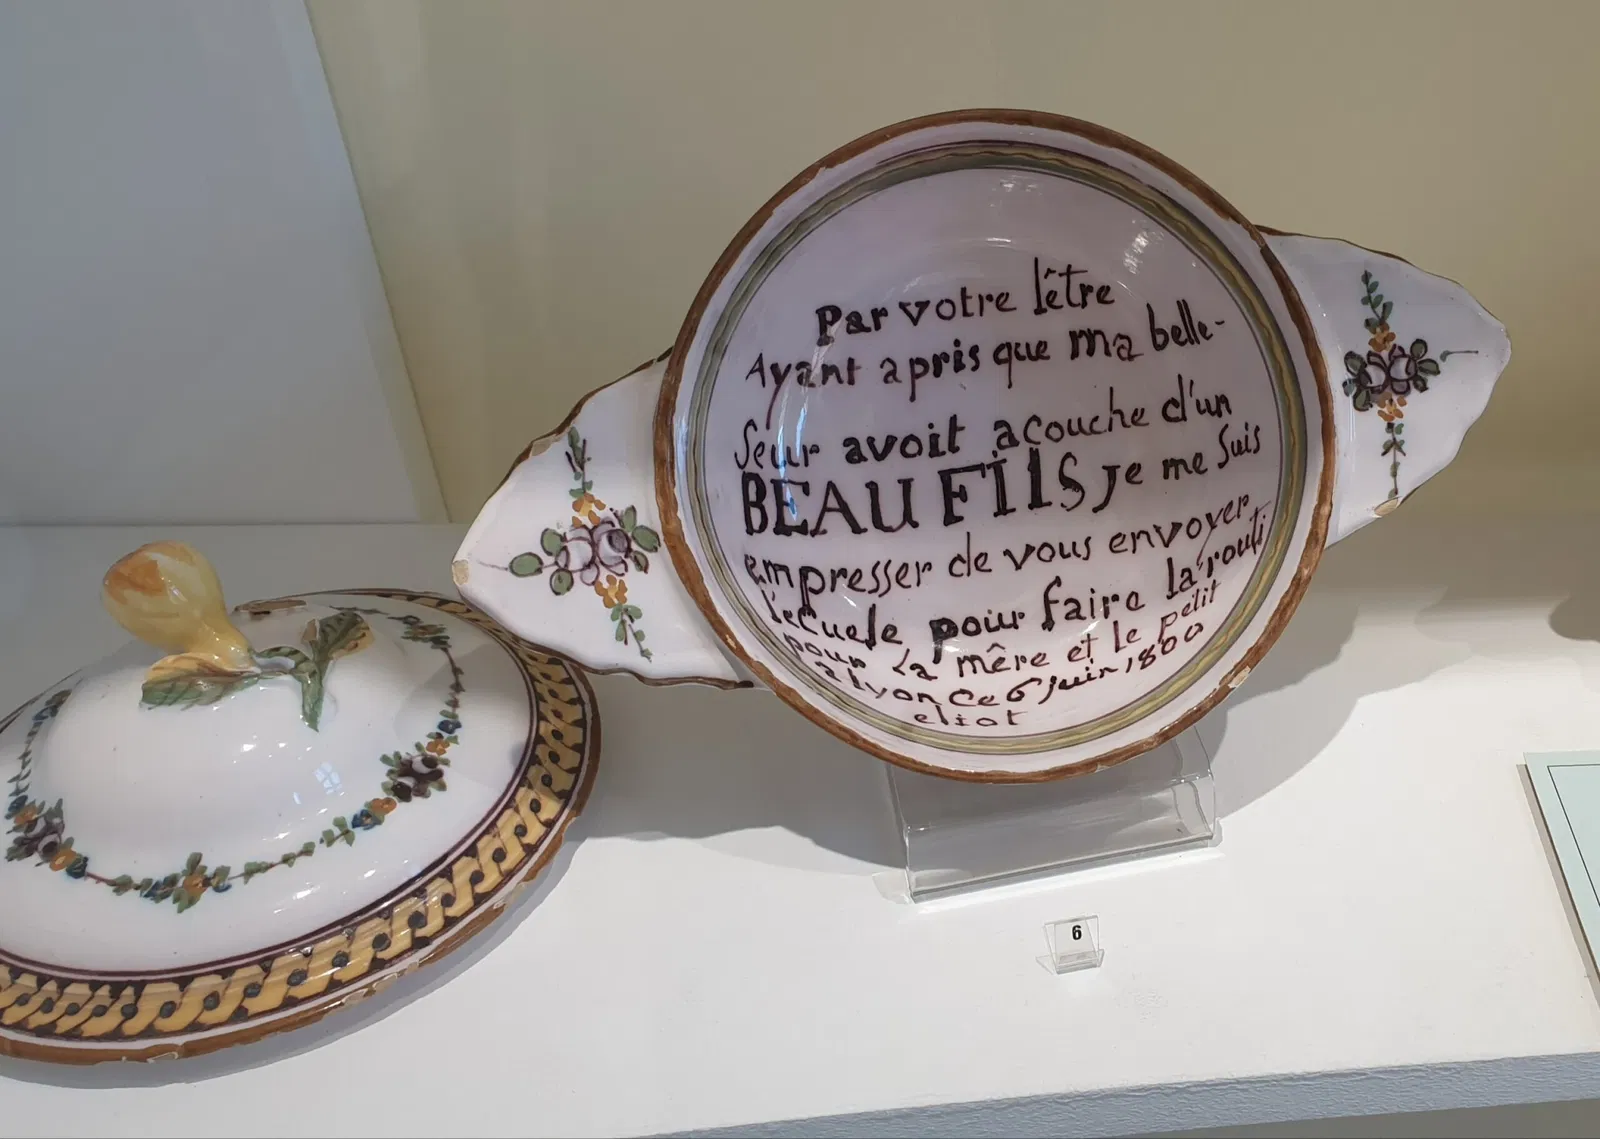 Par votre lêtre
Ayant apris que ma belle-
Seur avoit acouche d'un
BEAU FIlS Je me Suis
empresser de vous envoyer
l'ecuele pour faire la routi
pour La mêre et le petit
a lyon Ce 6 juin 1800
eliot
6